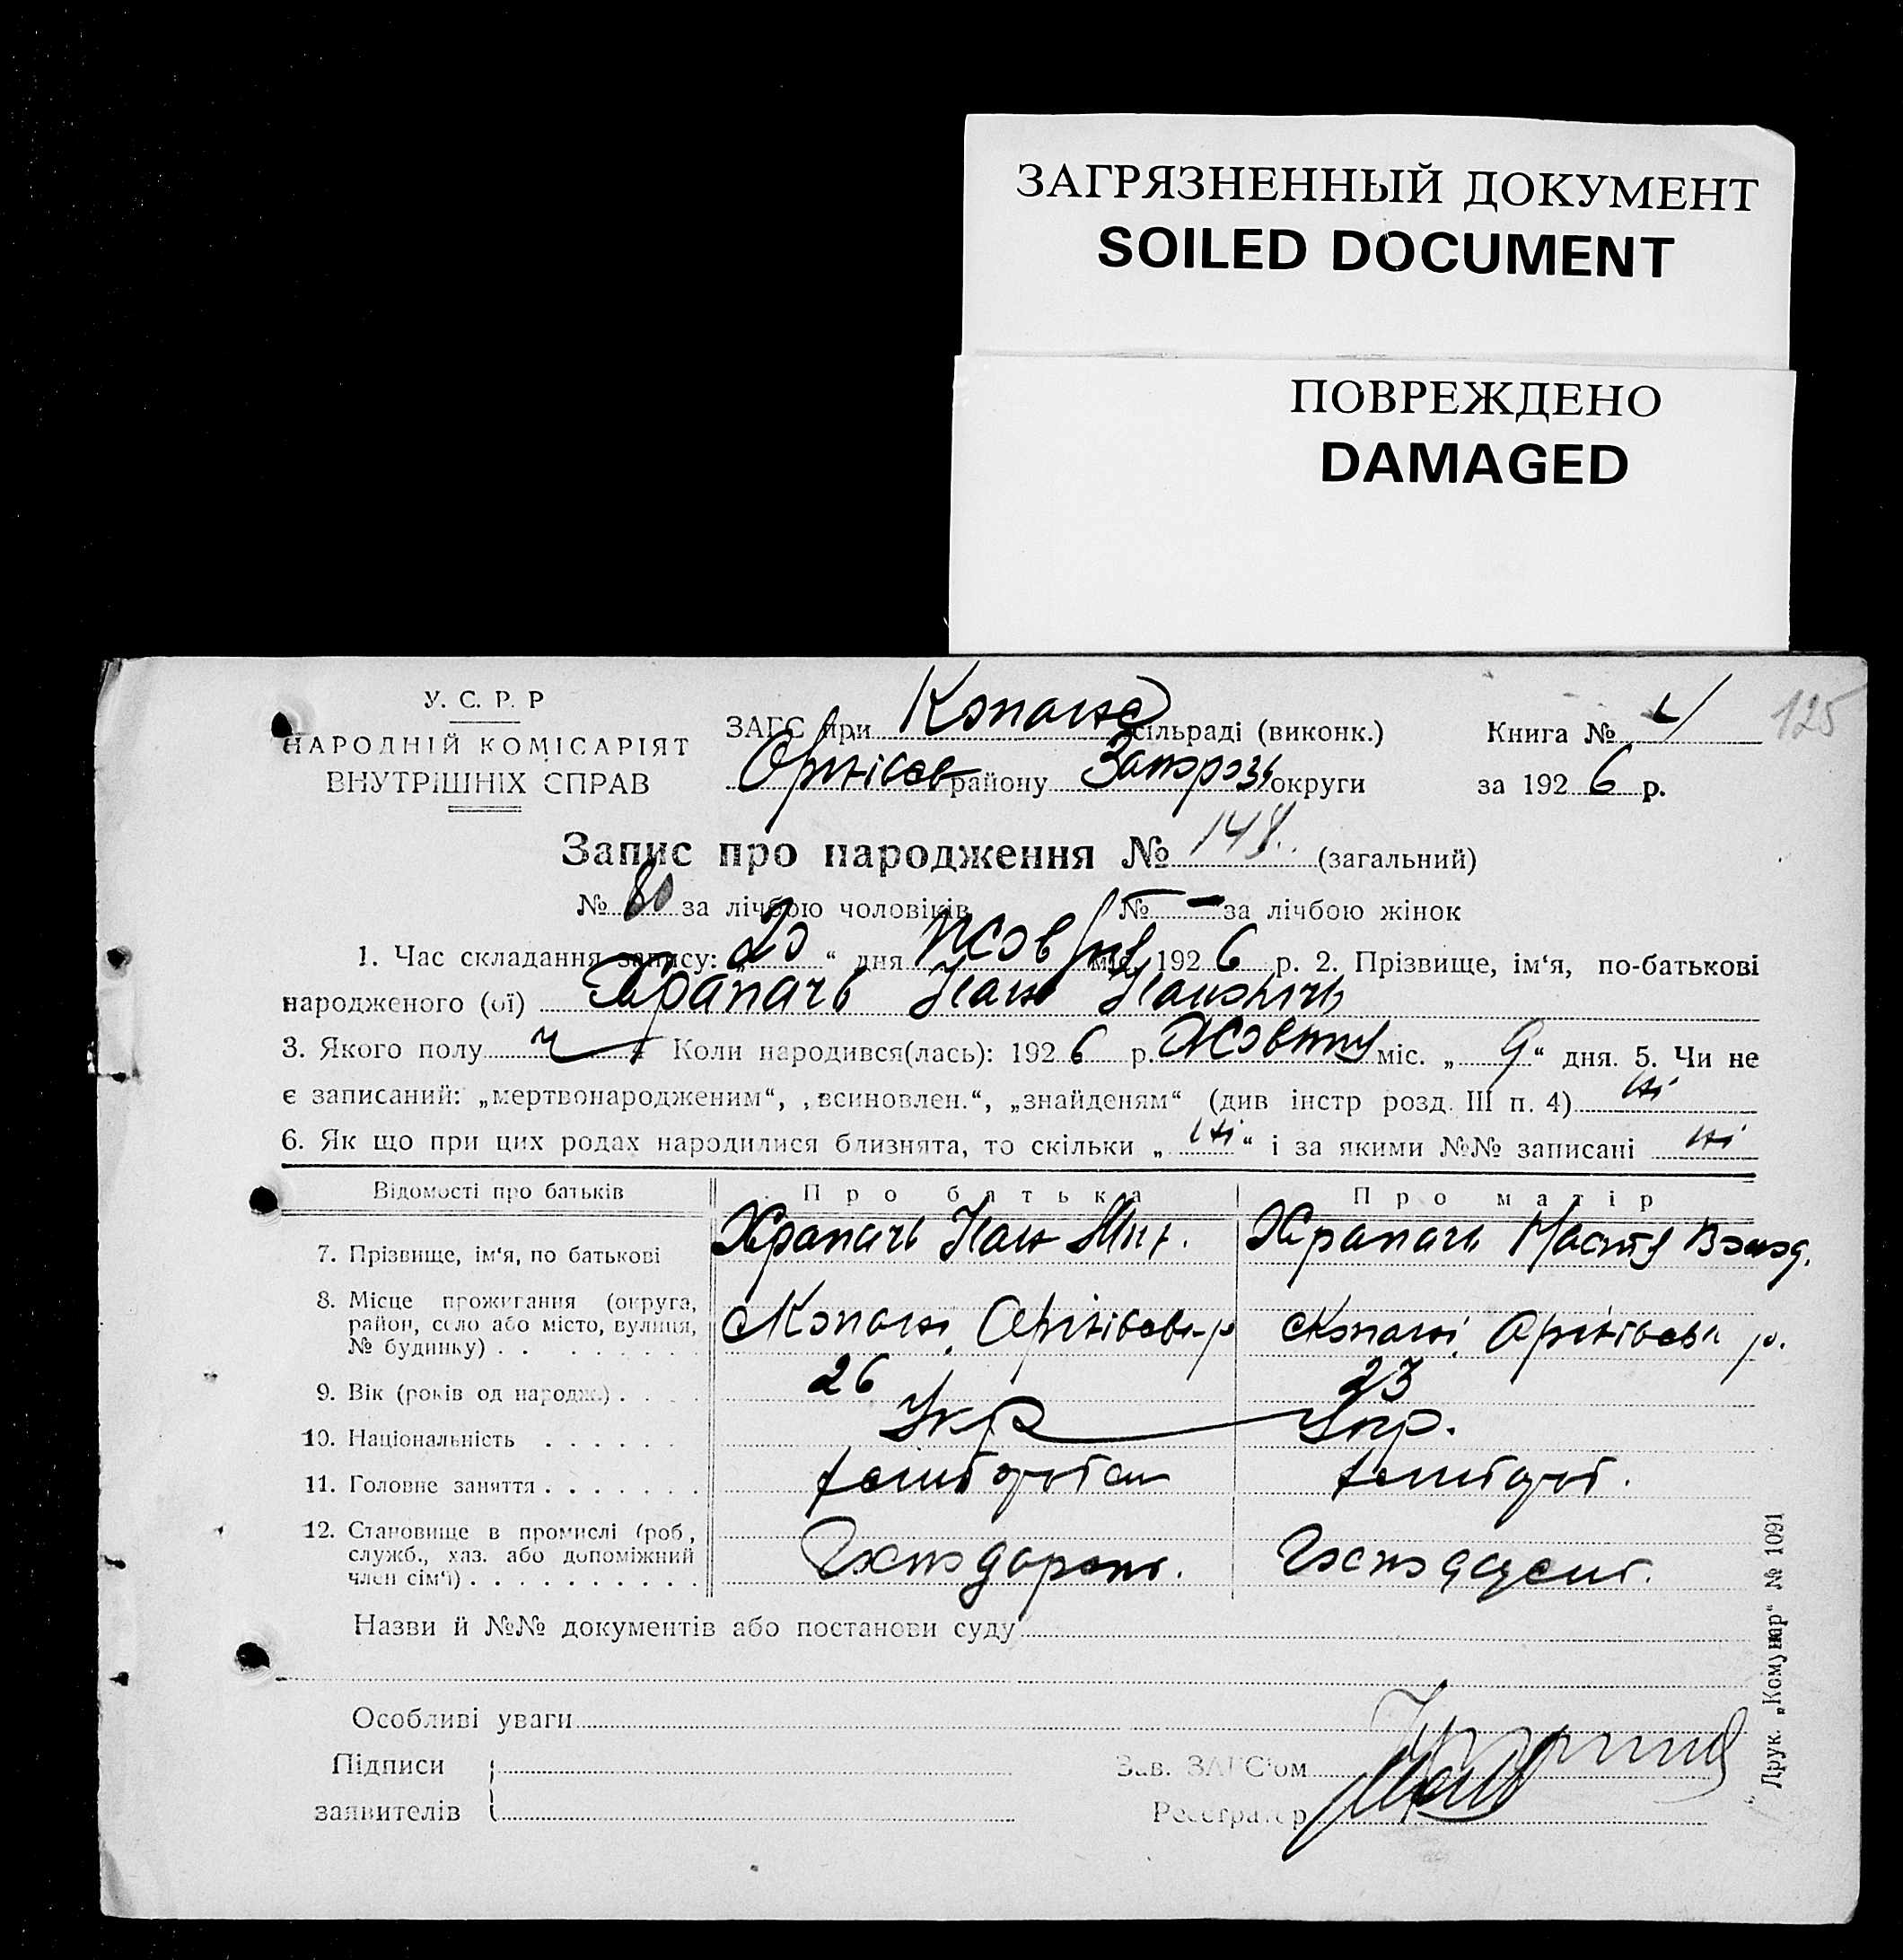 ЗАГРЯЗНЕННЫЙ ДОКУМЕНТ
SOILED DOCUMENT
ПОВРЕЖДЕНО
DAMAGED
У. С. Р. Р
НАРОДНІЙ КОМІСАРІЯТ
ВНУТРІШНІХ СПРАВ
ЗАГС при Копанс сільраді (виконк.)
Оріхівсь району Запорозь округи
Книга № 4
125
за 1926 р.
Запис про народження № 148 (загальний)
№ 80 за лічбою чоловіків № — за лічбою жінок
1. Час складання запису: „20“ дня жовтня міс. 1926 р. 2. Прізвище, ім‘я, по-батькові
народженого (ої) Храпачь Іван Іванович
3. Якого полу ч 4 Коли народився(лась): 1926 р. Жовтня міс. „9“ дня. 5. Чи не
є записаний: „мертвонародженим“, „всиновлен.“, „знайденям“ (див інстр розд. III п. 4) ні
6. Як що при цих родах народилися близнята, то скільки „ні“ і за якими №№ записані ні
Відомості про батьків Про батька Про матір
7. Прізвище, ім‘я, по батькові Храпачь Іван Храпачь
8. Місце прожигання (округа, район, село або місто, вулиця, № будинку) Копані, Оріхівськ р Копані, Оріхівськ р.
9. Вік (років од народж.) 26 23
10. Національність Укр Укр.
11. Головне заняття
12. Становище в промислі (роб., служб., хаз. або допоміжний член сім‘ї)
Назви й №№ документів або постанови суду
Особливі уваги
Підписи
заявителів
Зав. ЗАГС‘ом
Реєстратор
Друк. „Комунар“ № 1091